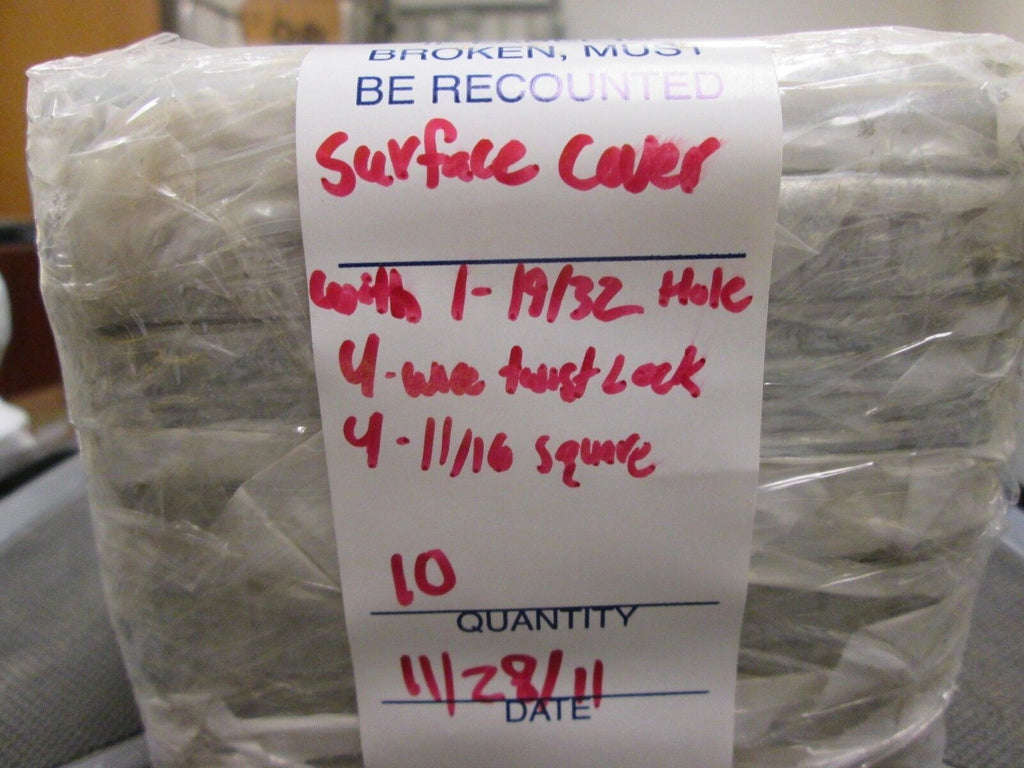 BROKEN, MUST
BE RECOUNTED
Surface Cover
with 1-19/32 Hole
4-wire twist Lock
4-11/16 square
10
QUANTITY
11/28/11
DATE